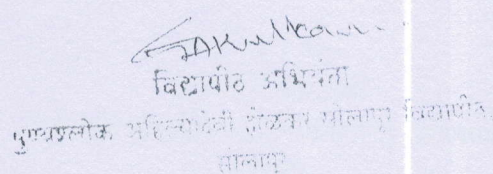 विद्यापीठ अभियंता
पुण्यश्लोक अहिल्यादेवी होळकर सोलापूर विद्यापीठ,
सोलापूर